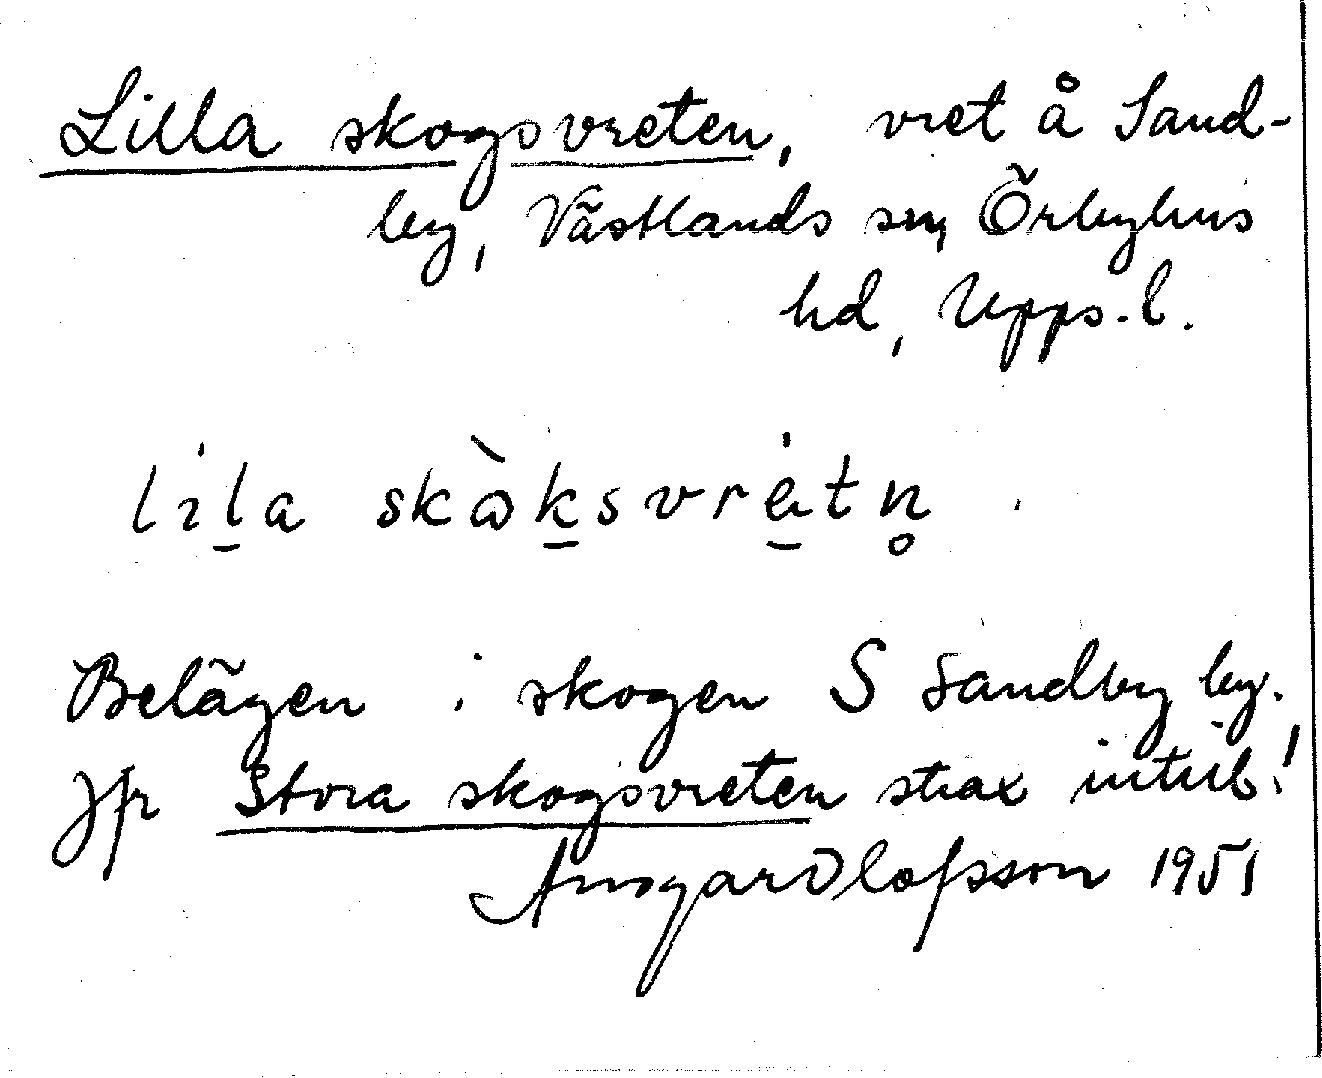 Lilla skogsvreten, vret å Sand-
by, Västlands sn, Örbyhus
hd, Upps. l.
lıl̠a skὼk̠svre̠tn̥ .
Belägen i skogen S Sandby by.
Jfr Stora skogsvreten strax intill!
Ansgar Olofsson 1951